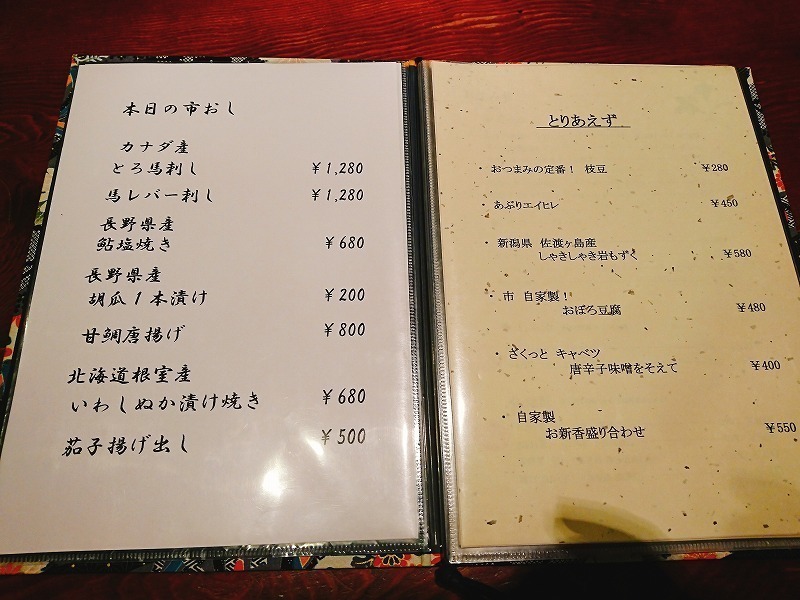 本日の市おし
カナダ産
とろ馬刺し ￥1,280
馬レバー刺し ￥1,280
長野県産
鮎塩焼き ￥680
長野県産
胡瓜1本漬け ￥200
甘鯛唐揚げ ￥800
北海道根室産
いわしぬか漬け焼き ￥680
茄子揚げ出し ￥500
とりあえず
・ おつまみの定番！ 枝豆 ￥280
・ あぶりエイヒレ ￥450
・ 新潟県 佐渡ヶ島産
しゃきしゃき岩もずく ￥580
・ 市 自家製！
おぼろ豆腐 ￥480
・ ざくっと キャベツ
唐辛子味噌をそえて ￥400
・ 自家製
お新香盛り合わせ ￥550